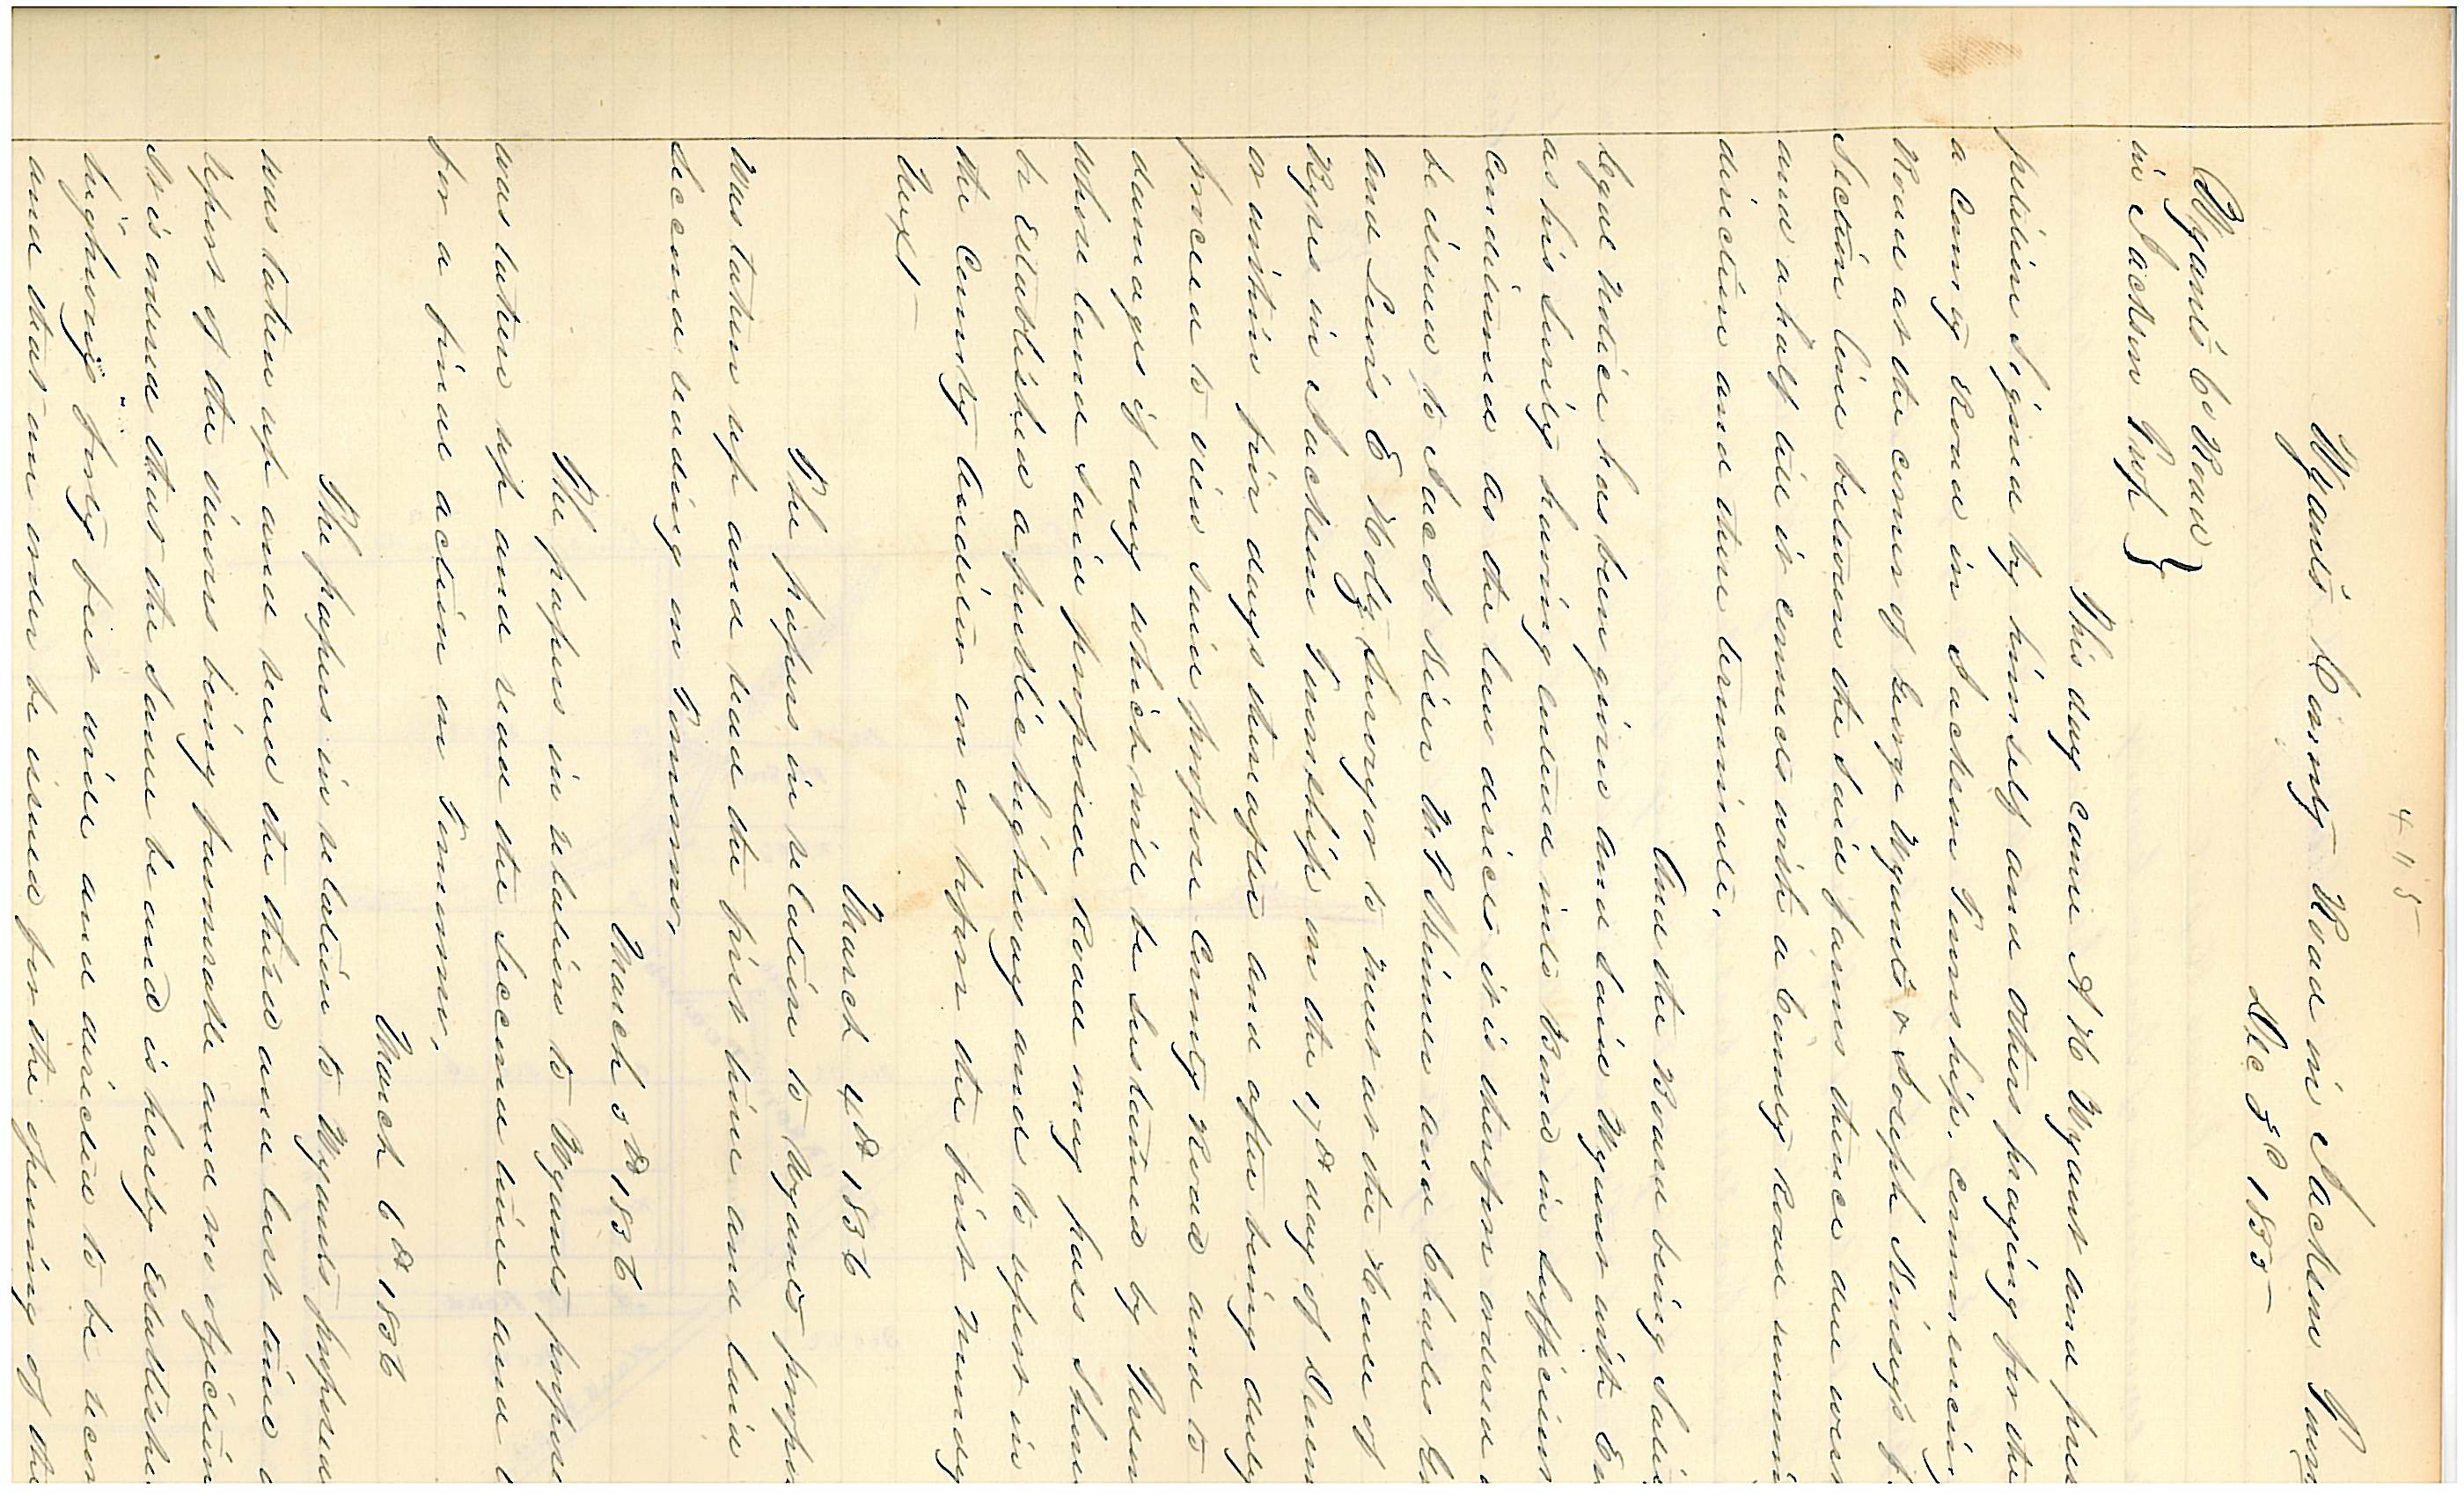 415
Wyant's County Road in Jackson Town
Dec 5th 1855
Wyant's Co Road
in Jackson Twp }
This day came A H Wyant and pres
petition signed by himself and others praying for the
a County Road in Jackson Township, commencing
Road at the corner of George Wyant's & Joseph Nining's f
Section line between the said farms thence due west
and a half till it connects with a County Road runni
direction and there terminate.
And the Board being Satis
Legal Notice has been given and said Wyant with
as his Surity having entered into Bond in sufficient
conditioned as the law directs it is therefore ordered
be issued to Jacob Kiser W P Shiner and Charles
and Lewis E Holtz, Surveyor to meet at the House of
Kyses in Jackson Township on the 17th day of Decem
or within five days thereafter and after being duly
proceed to view said proposed County Road and to
damages if any which will be sustained by Person
whose land said proposed Road may pass Shou
be Established a public highway and to report in
the County Auditor on or before the first Monday
Next
March 4th 1856
The papers in relation to Wyants propo
was taken up and read the first time and laid
second reading on Tomorrow.
March 5th 1856
The papers in relation to Wyants propose
was taken up and read the second time and l
for a final action on Tomorrow.
March 6th 1856
The papers in relation to Wyants proposed
was taken up and read the third and last time
report of the viewers being favorable and no objection
It is ordered that the same be and is hereby Established
highway forty feet wide and directed to be recor
and that an order be issued for the opening of the